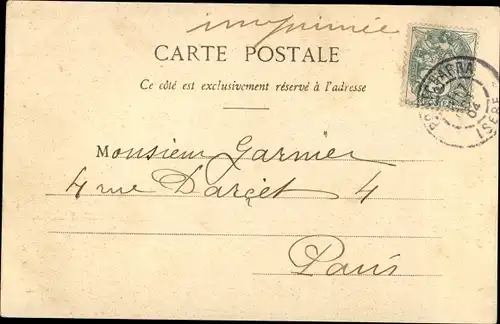 imprimée
CARTE POSTALE
Ce côté est exclusivement réservé à l'adresse
Monsieur Garnier
4 rue Darcet 4
Paris
04
ISERE